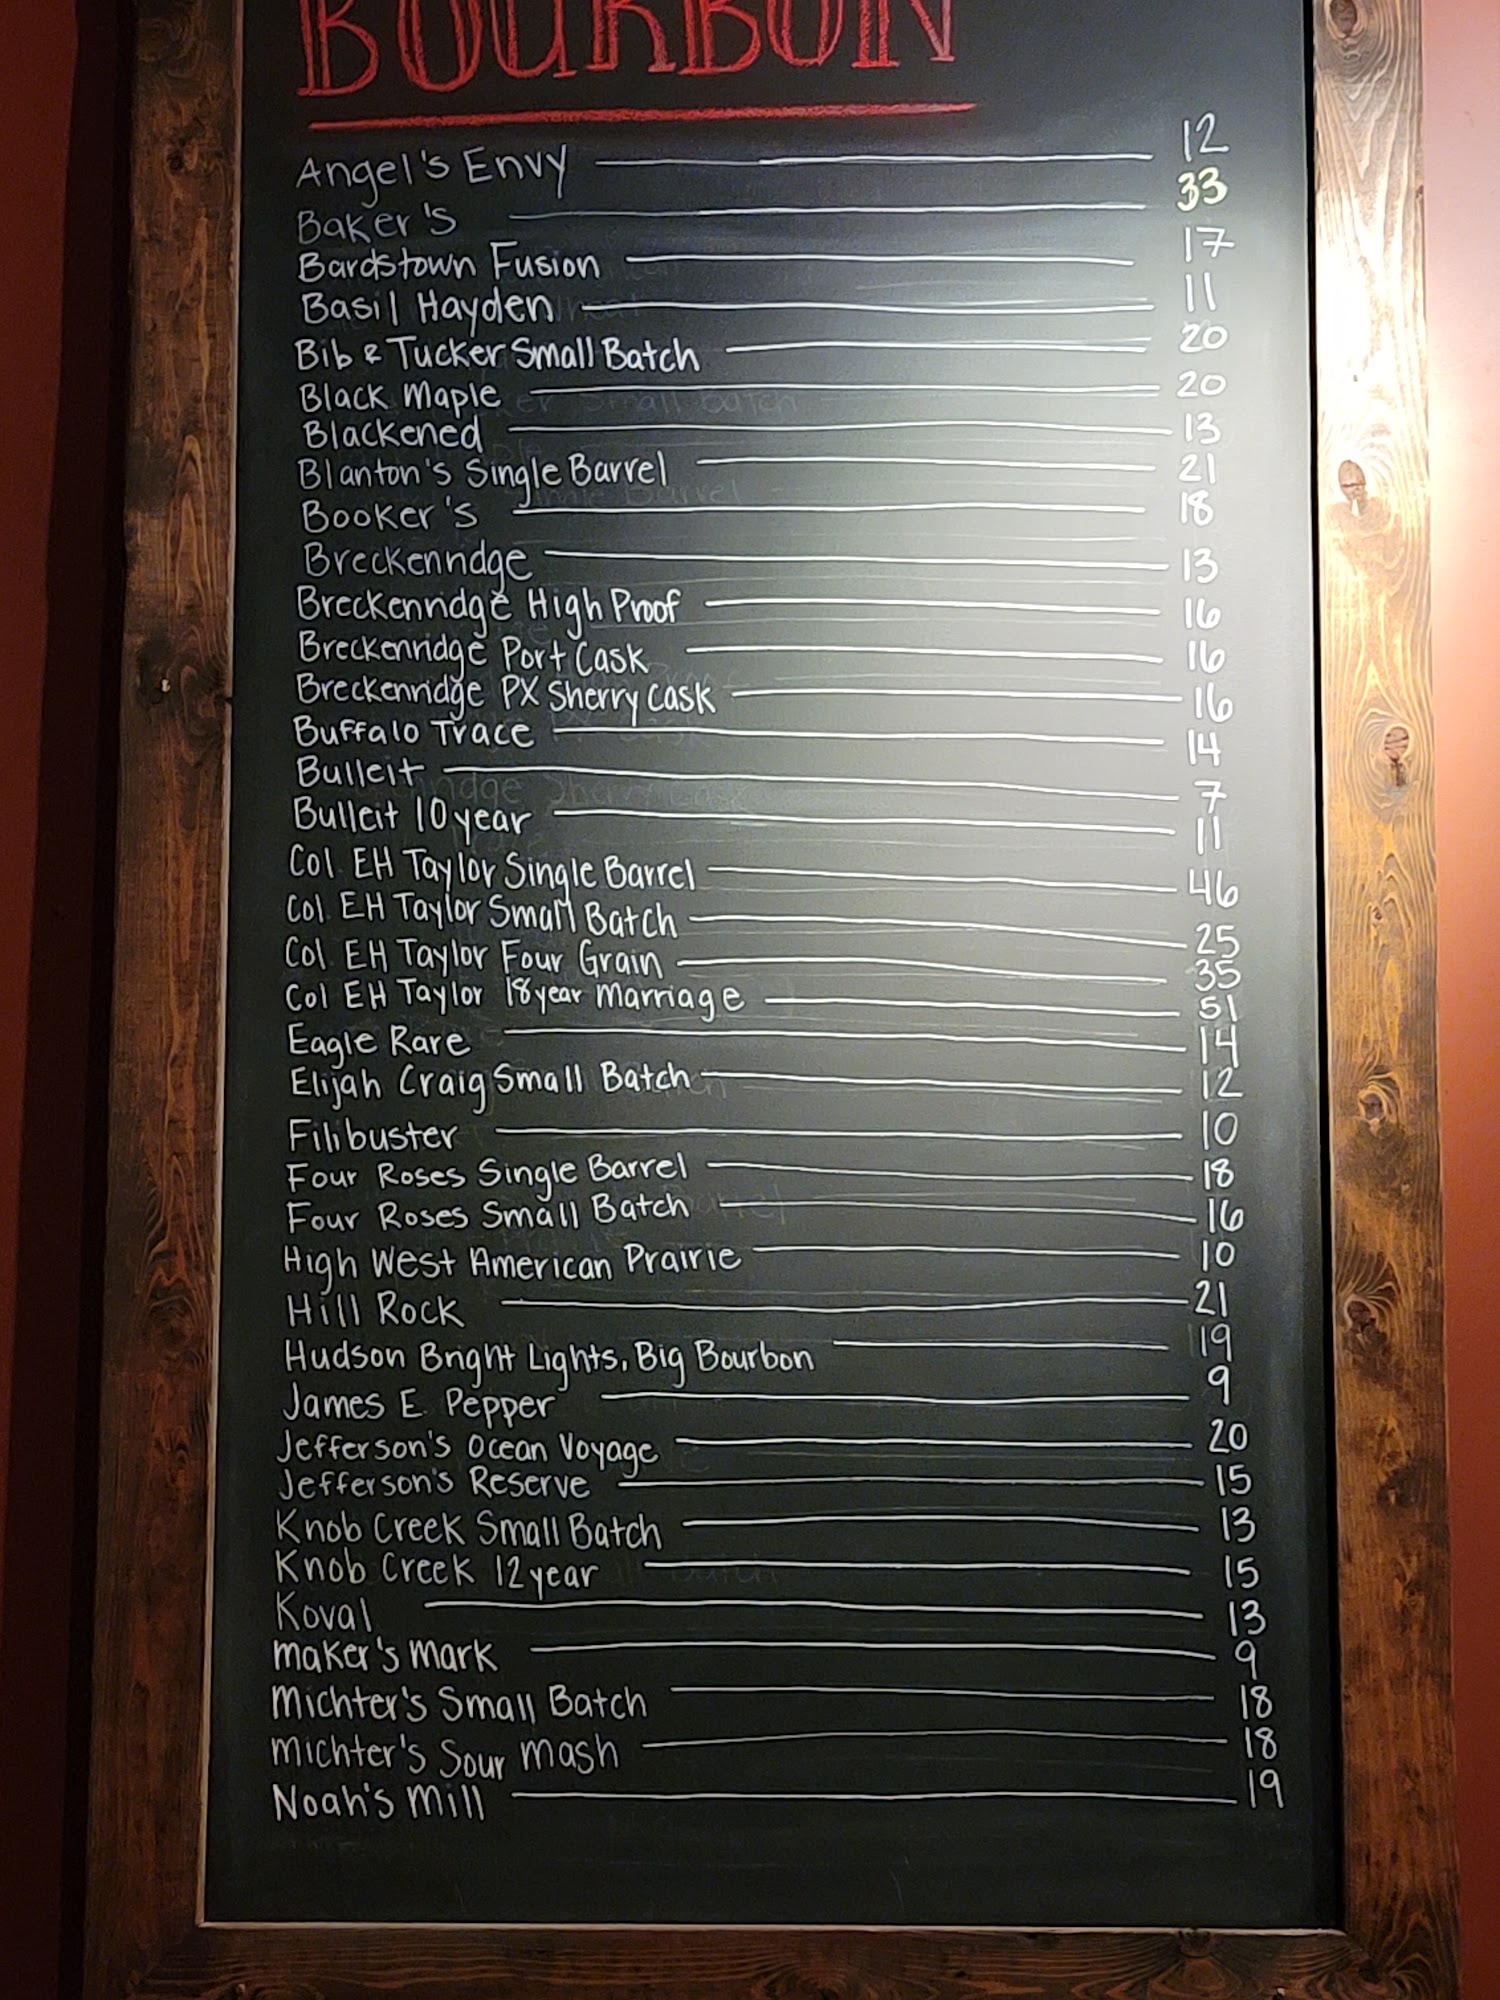 BOURBON
Angel's Envy 12
Baker's 33
Bardstown Fusion 17
Basil Hayden 11
Bib & Tucker Small Batch 20
Black Maple 20
Blackened 13
Blanton's Single Barrel 21
Booker's 18
Breckenridge 13
Breckenridge High Proof 16
Breckenridge Port Cask 16
Breckenridge PX Sherry Cask 16
Buffalo Trace 14
Bulleit 7
Bulleit 10 year 11
Col. EH Taylor Single Barrel 46
Col. EH Taylor Small Batch 25
Col. EH Taylor Four Grain 35
Col EH Taylor 18 year Marriage 51
Eagle Rare 14
Elijah Craig Small Batch 12
Filibuster 10
Four Roses Single Barrel 18
Four Roses Small Batch 16
High West American Prairie 10
Hill Rock 21
Hudson Bright Lights, Big Bourbon 19
James E. Pepper 9
Jefferson's Ocean Voyage 20
Jefferson's Reserve 15
Knob Creek Small Batch 13
Knob Creek 12 year 15
Koval 13
Maker's Mark 9
Michter's Small Batch 18
Michter's Sour Mash 18
Noah's Mill 19